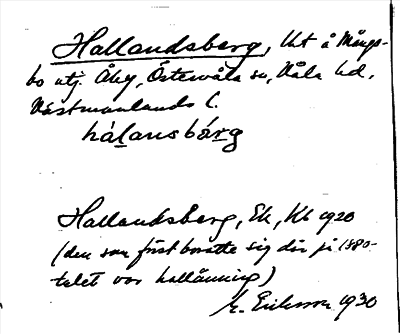 Hallandsberg, tht å Mångs-
bo utj. Åby, Östervåla sn, Våla hd,
Västmanlands l.
hálansbárg
Hallandsberg, Ek, Kb 1920
(den som först bosatte sig där på 1880-
talet var hallänning)
E. Eriksson 1930